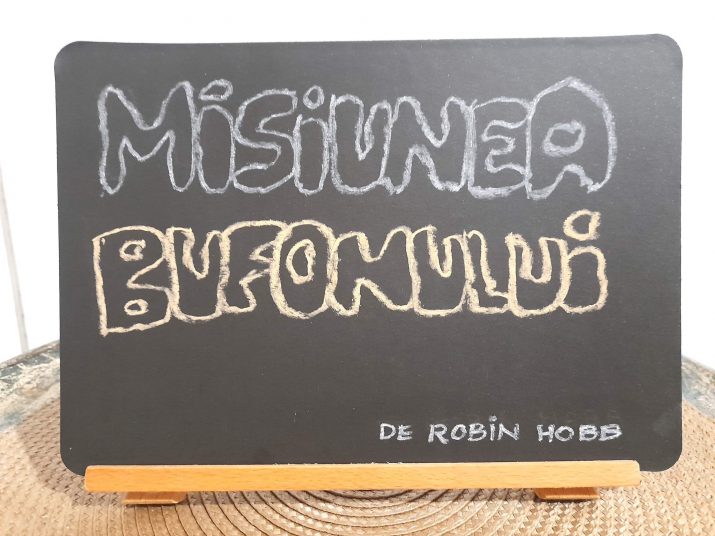 MiSiUNEA
BUFONULUi
DE ROBiN HOBB